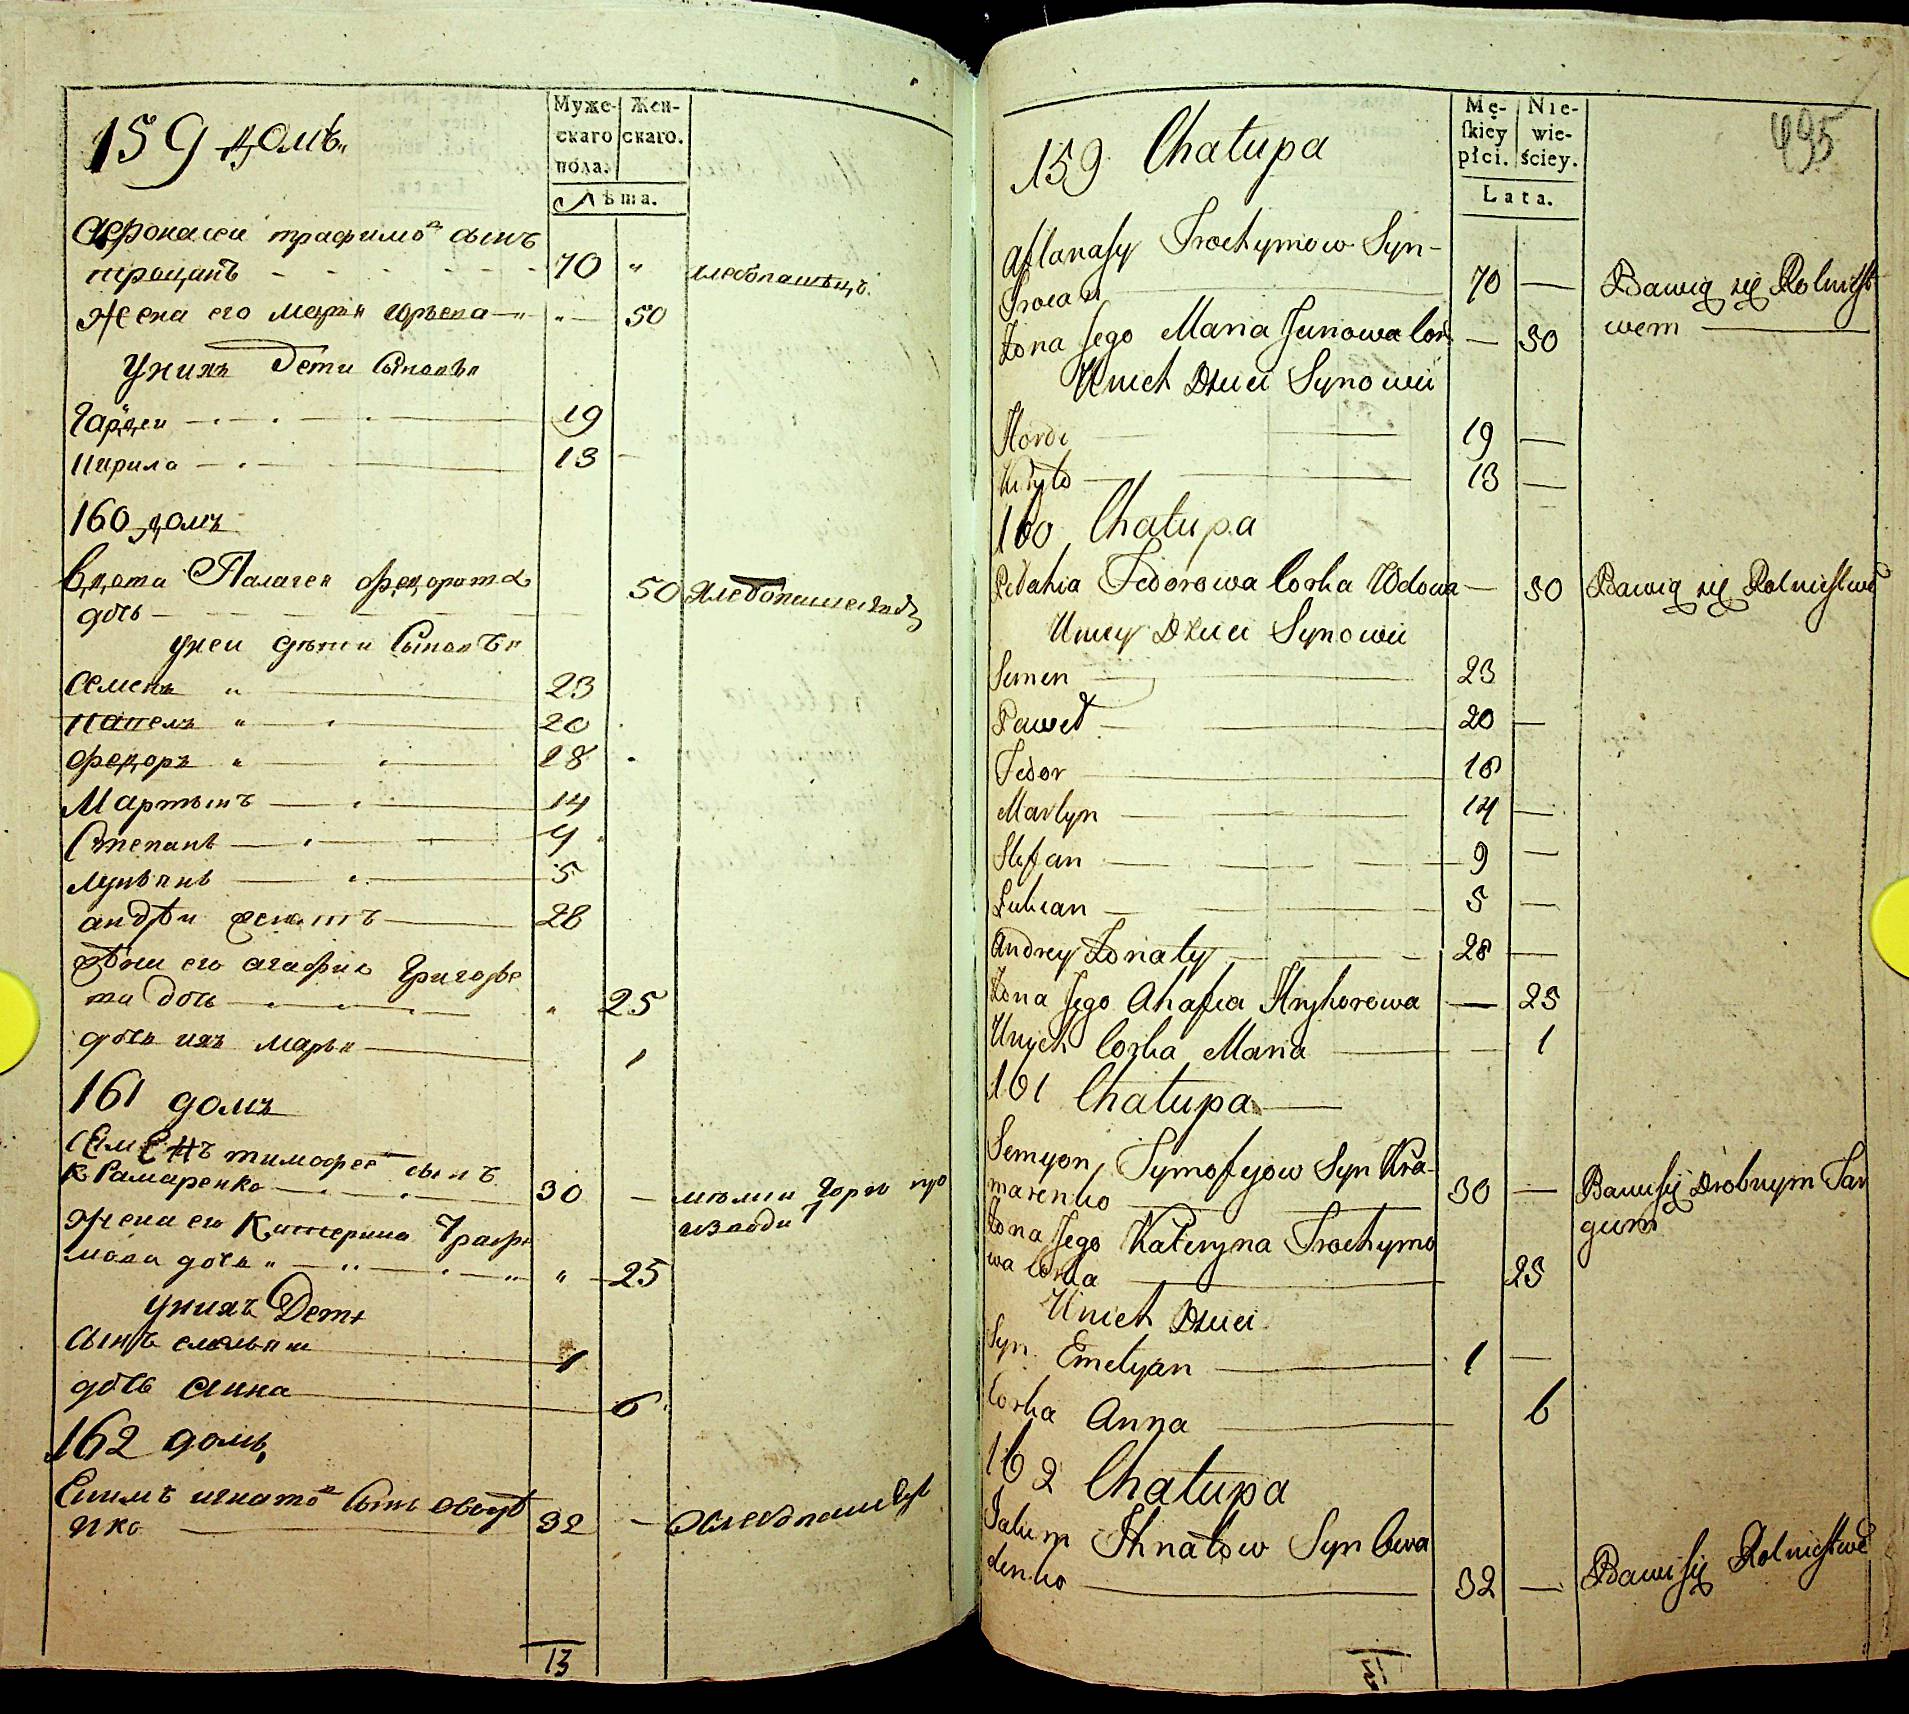 Муже-
скаго
пола.
Жен-
скаго.
Лѣта.
159 домъ
Афонасеи трафимо в сынъ
троцанъ 70 " хлебопашецъ
Жена его Мария Юрьева " 50
у них Дети Сыновья
Гардеи 19
Кирила 13
160 домъ
Вдова Палагея федорова
дочь 50 Хлебопашес
у неи дѣти Сыновья
Семенъ " 23
Павелъ " 20
федоръ " 18
Мартынъ 14
Степанъ 9
лукьянъ 5
андреи 28
его агафия Григорье
ва дочь 25
дочь ихъ марья 1
161 домъ
СЕмЕНъ тимофеев сынъ
КРамаренко 30 —
Жена его Катерина Трафи
мова дочь " " 25
у нихъ Дети
сынъ емельян 1
дочь анна 6
162 домъ
Екимъ игнатов Сынъ
нко 32 — Хлебопашец
13
495
Mę-
skiey
płci.
Nie-
wie-
ściey.
Lata.
159 Chałupa
Aftanasy Trochymow Syn
Trocan 70 — Bawią się Rolnicst
wem
Żona Jego Maria Jurıowa Cor — 50
U nich Dzieci Synowie
Hordi 19 —
Kiryło 13 —
160 Chałupa
Pelahia Fedorowa Corka Wdowa — 50 Bawią się Rolnictwe
U niey Dzieci Synowie
Semen 23
Paweł 20 —
Fedor 18
Martyn 14 —
Stefan 9 —
Lukian 5 —
Andrey Żonaty 28 —
Żona Jego Ahafia Hryhorowa — 25
U nych Corka Maria 1
161 Chałupa
Semyon Tymofyiow Syn Kra-
marenko 30 — Bawi się Drobnym Tar
gum
Żona Jego Kateryna Trochymo
wa Corka 25
U nich Dzieci
Syn Emelyan 1 —
Corka Anna 6
162 Chałupa
Jakim Ihnatow Syn Cwa
denko 32 — Bawi się Rolnictwe
13